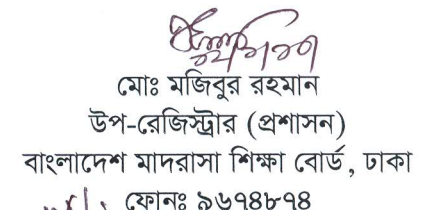 মোঃ মজিবুর রহমান
উপ-রেজিস্ট্রার (প্রশাসন)
বাংলাদেশ মাদরাসা শিক্ষা বোর্ড, ঢাকা
ফোনঃ ৯৬৭৪৮৭৪